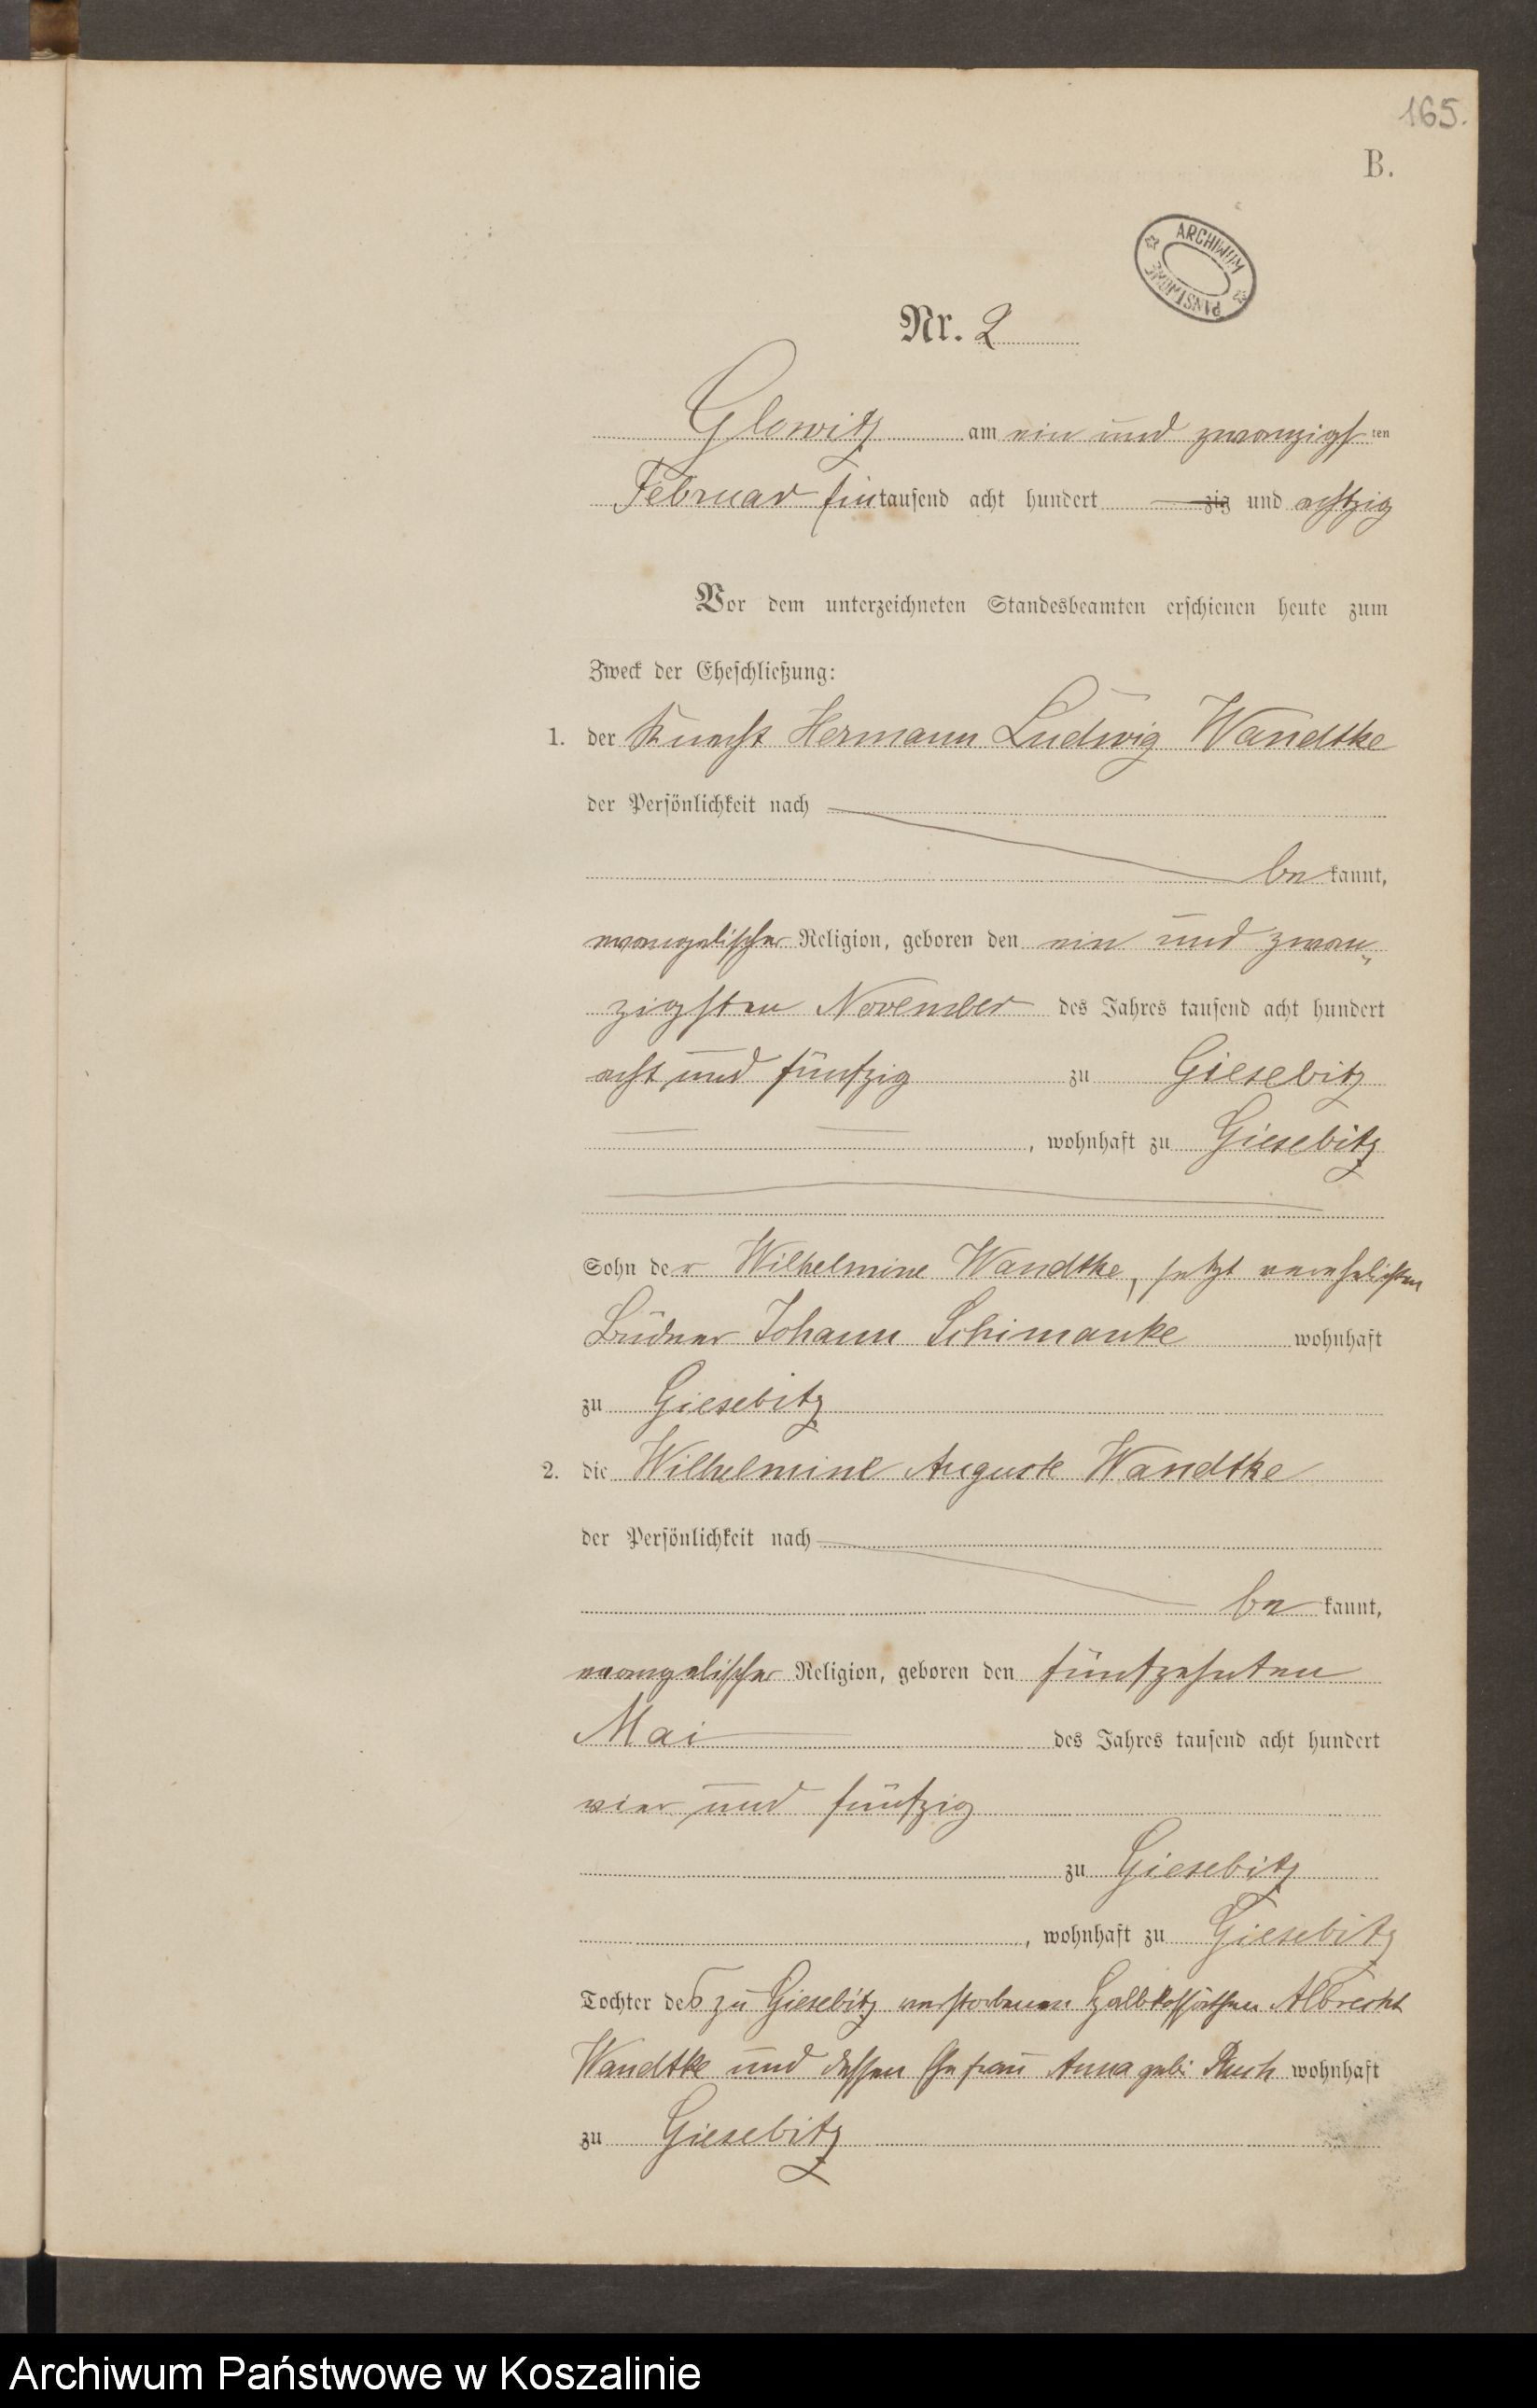 165.
B.
ARCHIWUM PAŃSTWOWE
Nr. 2
Glowitz am ein und zwanzigsten
Februar Eintausend acht hundert zig und achtzig
Vor dem unterzeichneten Standesbeamten erschienen heute zum
Zweck der Eheschließung:
1. der Knecht Hermann Ludwig Wandtke
der Persönlichkeit nach
be kannt,
evangelischer Religion, geboren den ein und zwan-
zigsten November des Jahres tausend acht hundert
acht und fünfzig zu Giesebitz
, wohnhaft zu Giesebitz
Sohn der Wilhelmine Wandtke, jetzt verehelichten
Büdner Johann Schimanke wohnhaft
zu Giesebitz
2. die Wilhelmine Auguste Wandtke
der Persönlichkeit nach
be kannt,
evangelischer Religion, geboren den fünfzehnten
Mai des Jahres tausend acht hundert
vier und fünfzig
zu Giesebitz
, wohnhaft zu Giesebitz
Tochter des zu Giesebitz verstorbenen Halbkossäthen Albrecht
Wandtke und dessen Ehefrau Anna geb: wohnhaft
zu Giesebitz
Archiwum Państwowe w Koszalinie